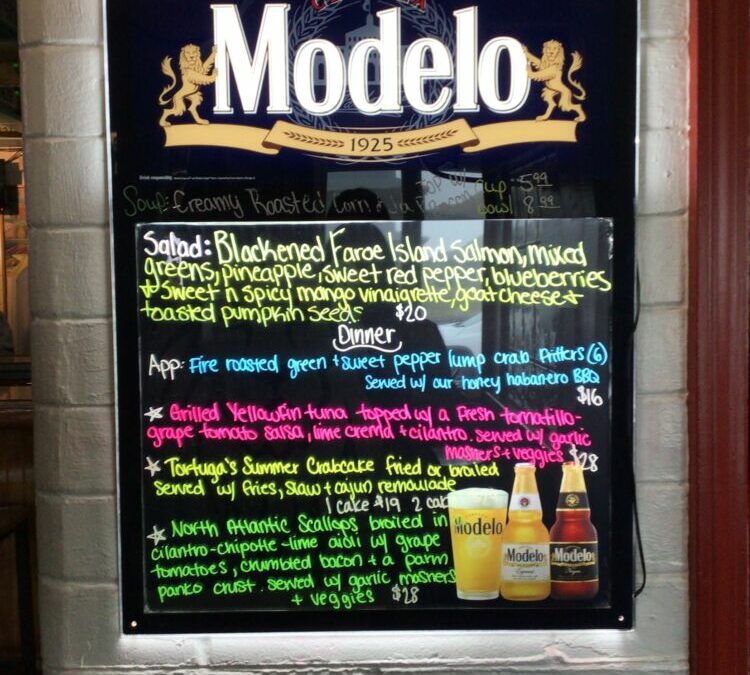 Modelo
1925
TOP w/ cup 5.99
Soup: Creamy Roasted Corn bowl 8.99
Salad: Blackened Faroe Island Salmon, mixed
greens, pineapple, sweet red pepper, blueberries
+ sweet n spicy mango vinaigrette, goat cheese +
toasted pumpkin seeds $20
Dinner
App: Fire roasted green + sweet pepper lump crab fritters (6)
served w/ our honey habanero BBQ
$16
Grilled Yellowfin tuna topped w/ a fresh tomatillo-
grape tomato salsa, lime crema + cilantro. served w/ garlic
mashers + veggies $28
Tortuga's Summer Crabcake fried or broiled
served w/ fries, slaw + cajun remoulade
1 cake $19 2 cak
North Atlantic Scallops broiled in
cilantro-chipotle-lime aioli w/ grape
tomatoes, crumbled bacon + a parm
panko crust. served w/ garlic mashers
+ veggies $28
Modelo
Modelo
Modelo